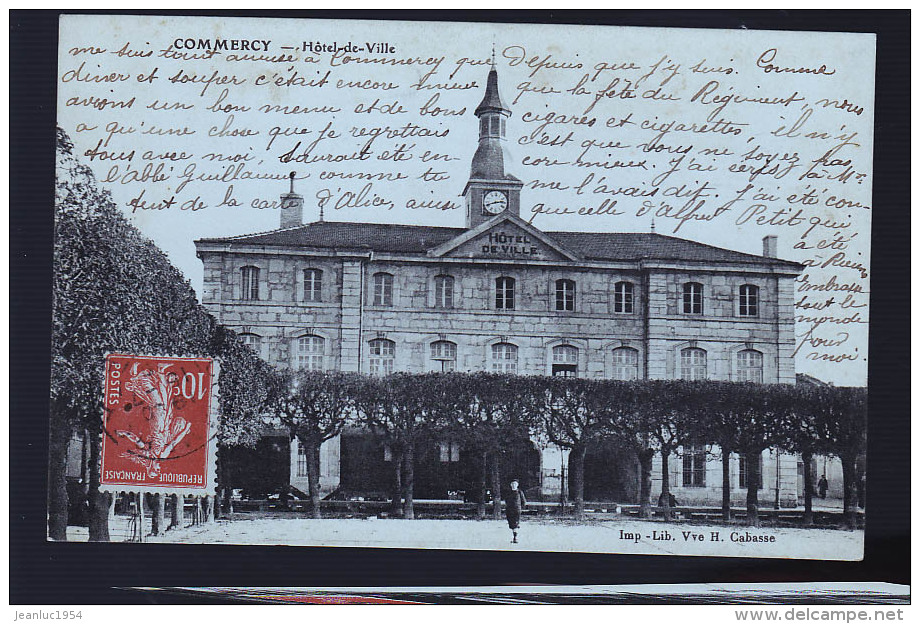 COMMERCY — Hôtel-de-Ville
me suis tant amusé à Commercy que Depuis que j'y suis. Comme
diner et souper c'était encore mieux que la fête du Régiment, nous
avions un bon menu et de bons cigares et cigarettes, il n'y
a qu'une chose que je regrettais c'est que vous ne soyez pas
tous avec moi, saurait été en-core mieux. J'ai
l'Abbé Guillaume comme tu me l'avais dit J'ai été con-
tent de la carte d'Alice, ainsi que celle d'Alfred Petit qui
a été
à
Embrasse
tout le
monde
pour
moi
HÔTEL
DE VILLE
POSTES
10c
REPUBLIQUE FRANÇAISE
Imp -Lib. Vve H. Cabasse
jeanluc1954
www.delcampe.net